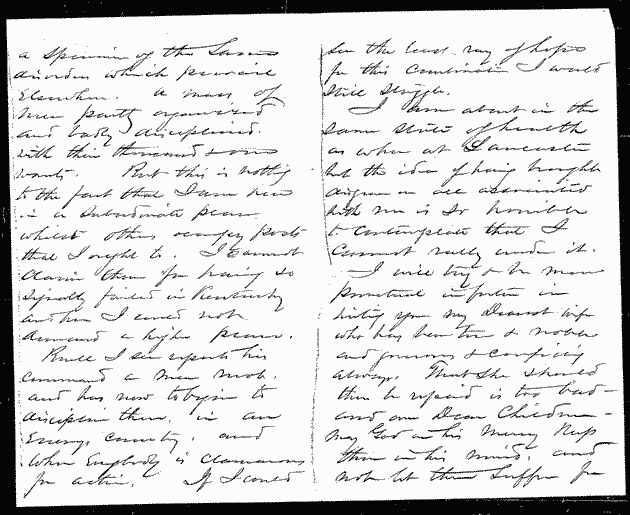 a specimen of the same
disorders which prevail
Elsewhere. a mass of
men partly organized
and badly disciplined.
with their thousand & one
wants. But this is nothing
to the fact that I am here
in a subordinate place
whilst others occupy posts
that I ought to. I cannot
claim them for having so
signally failed in Kentucky
and here I could not
demand a higher place.
I see reports his
command a mere mob.
and has now to begin to
discipline them. in an
Enemys country. and
when Everybody is clamorous
for action. If I could
see the least ray of hope
for this combination I would
still struggle.
I am about in the
same state of health
as when at Lancaster
but the idea of having brought
disgrace on all associated
with me is so horrible
to contemplate that I
cannot really endure it.
I will try & be more
punctual in future in
writing you my Dearest wife
who has been true & noble
and generous & comforting
always. That she should
thus be repaid is too bad -
and our Dear Children -
may God in his Mercy keep
them in his mind, and
not let them suffer for